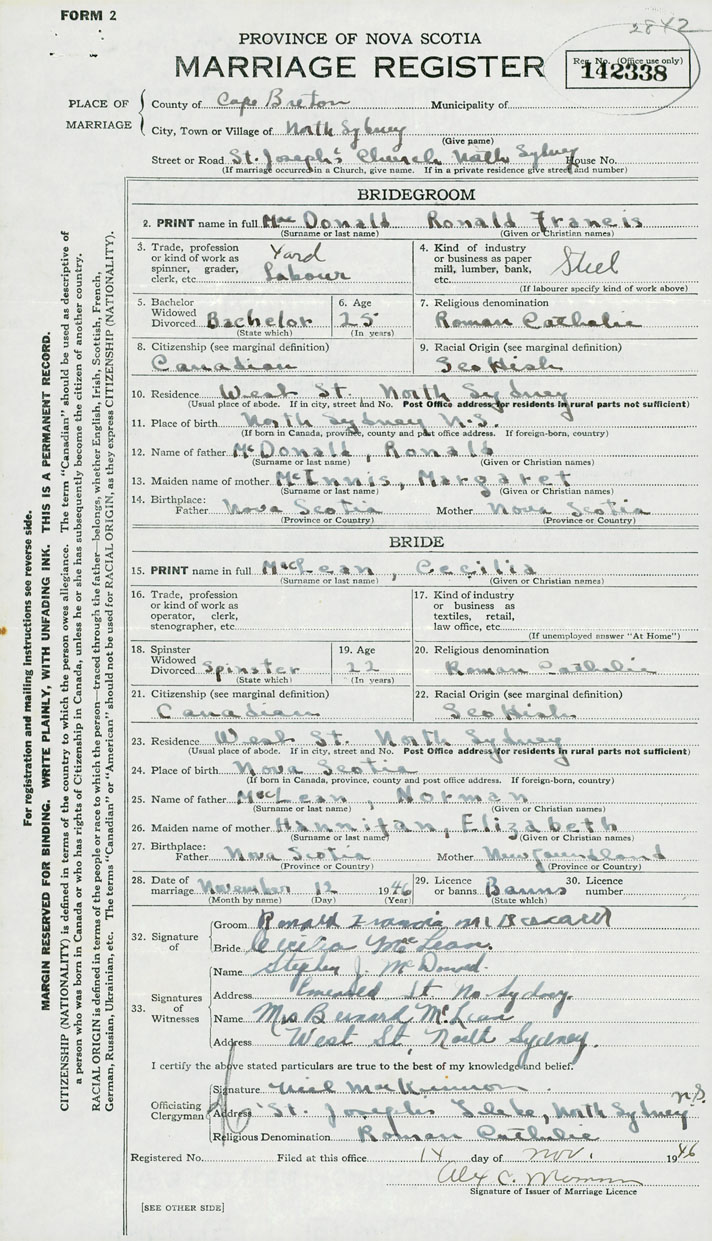 FORM 2
2842
PROVINCE OF NOVA SCOTIA
MARRIAGE REGISTER
Reg. No. (Office use only)
142338
PLACE OF MARRIAGE
County of Cape Breton Municipality of
City, Town or Village of North Sydney
(Give name)
Street or Road St. Joseph's Church North Sydney House No.
(If marriage occurred in a Church, give name. If in a private residence give street and number)
BRIDEGROOM
2. PRINT name in full MacDonald Ronald Francis
(Surname or last name) (Given or Christian names)
3. Trade, profession or kind of work as spinner, grader, clerk, etc. Yard Labour
4. Kind of industry or business as paper mill, lumber, bank, etc. Steel
(If labourer specify kind of work above)
5. Bachelor Widowed Divorced Bachelor
(State which)
6. Age 25
(In years)
7. Religious denomination
Roman Catholic
8. Citizenship (see marginal definition)
Canadian
9. Racial Origin (see marginal definition)
Scottish
10. Residence West St. North Sydney
(Usual place of abode. If in city, street and No. Post Office address for residents in rural parts not sufficient)
11. Place of birth North Sydney N.S.
(If born in Canada, province, county and post office address. If foreign-born, country)
12. Name of father McDonald, Ronald
(Surname or last name) (Given or Christian names)
13. Maiden name of mother McInnis, Margaret
(Surname or last name) (Given or Christian names)
14. Birthplace: Father Nova Scotia Mother Nova Scotia
(Province or Country) (Province or Country)
BRIDE
15. PRINT name in full MacLean, Cecilia
(Surname or last name) (Given or Christian names)
16. Trade, profession or kind of work as operator, clerk, stenographer, etc.
17. Kind of industry or business as textiles, retail, law office, etc.
(If unemployed answer "At Home")
18. Spinster Widowed Divorced Spinster
(State which)
19. Age 22
(In years)
20. Religious denomination
Roman Catholic
21. Citizenship (see marginal definition)
Canadian
22. Racial Origin (see marginal definition)
Scottish
23. Residence West St. North Sydney
(Usual place of abode. If in city, street and No. Post Office address for residents in rural parts not sufficient)
24. Place of birth Nova Scotia
(If born in Canada, province, county and post office address. If foreign-born, country)
25. Name of father MacLean, Norman
(Surname or last name) (Given or Christian names)
26. Maiden name of mother Hannifan, Elizabeth
(Surname or last name) (Given or Christian names)
27. Birthplace: Father Nova Scotia Mother Newfoundland
(Province or Country) (Province or Country)
28. Date of marriage November 12 1946
(Month by name) (Day) (Year)
29. Licence or banns Banns
(State which)
30. Licence number
32. Signature of
Groom Ronald Francis
Bride McLean.
33. Signatures of Witnesses
Name Stephen J. McDonald.
Address Emerald St No Sydney.
Name Mrs Bernard McLean
Address West St, North Sydney.
I certify the above stated particulars are to the best of my knowledge and belief.
Officiating Clergyman
Signature MacKinnon
Address St. Joseph's Glebe, North Sydney N.S.
Religious Denomination Roman Catholic
Registered No. Filed at this office 14 day of Nov. 1946
Alex C.
Signature of Issuer of Marriage Licence
[SEE OTHER SIDE]
For registration and mailing instructions see reverse side.
MARGIN RESERVED FOR BINDING. WRITE PLAINLY, WITH UNFADING INK. THIS IS A PERMANENT RECORD.
CITIZENSHIP (NATIONALITY) is defined in terms of the country to which the person owes allegiance. The term "Canadian" should be used as descriptive of
a person who was born in Canada or who has rights of Citizenship in Canada, unless he or she has subsequently become the citizen of another country.
RACIAL ORIGIN is defined in terms of the people or race to which the person—traced through the father—belongs, whether English, Irish, Scottish, French,
German, Russian, Ukrainian, etc. The terms "Canadian" or "American" should not be used for RACIAL ORIGIN, as they express CITIZENSHIP (NATIONALITY).